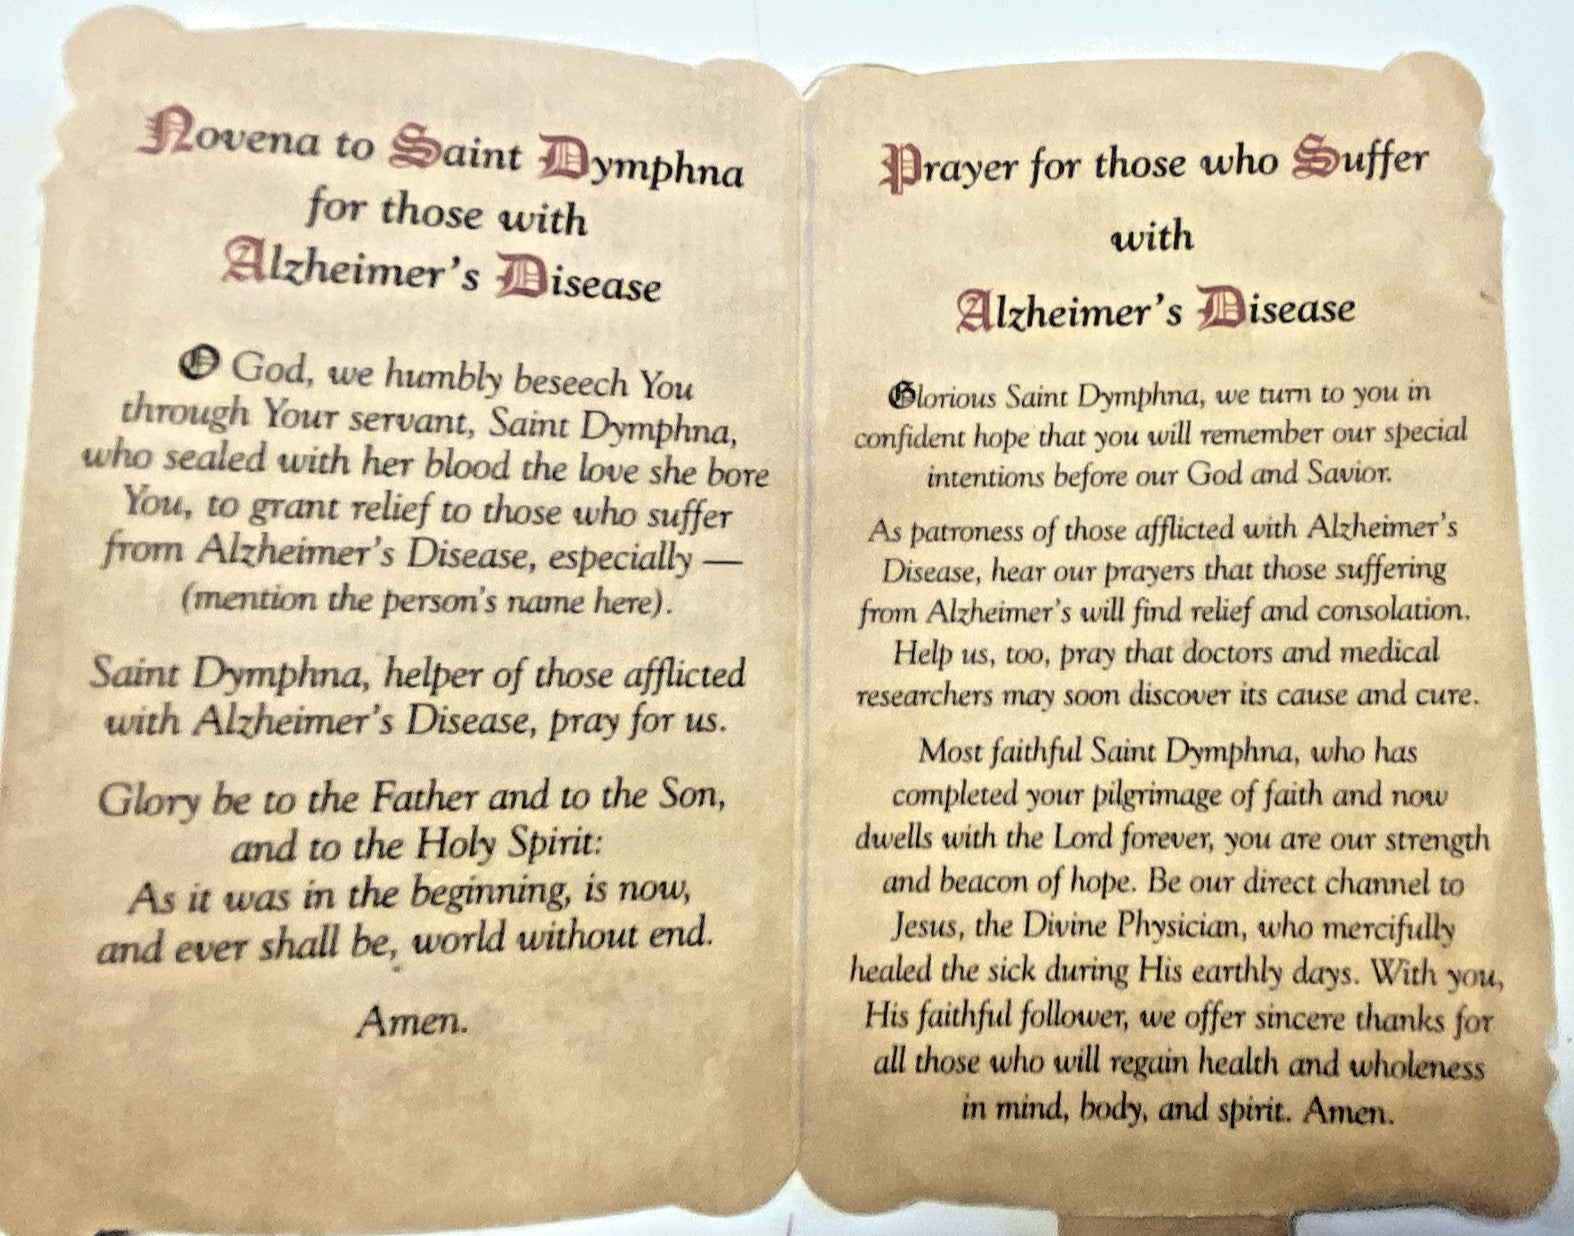 Novena to Saint Dymphna
for those with
Alzheimer's Disease
O God, we humbly beseech You
through Your servant, Saint Dymphna,
who sealed with her blood the love she bore
You, to grant relief to those who suffer
from Alzheimer's Disease, especially —
(mention the person's name here).
Saint Dymphna, helper of those afflicted
with Alzheimer's Disease, pray for us.
Glory be to the Father and to the Son,
and to the Holy Spirit:
As it was in the beginning, is now,
and ever shall be, world without end.
Amen.
Prayer for those who Suffer
with
Alzheimer's Disease
Glorious Saint Dymphna, we turn to you in
confident hope that you will remember our special
intentions before our God and Savior.
As patroness of those afflicted with Alzheimer's
Disease, hear our prayers that those suffering
from Alzheimer's will find relief and consolation.
Help us, too, pray that doctors and medical
researchers may soon discover its cause and cure.
Most faithful Saint Dymphna, who has
completed your pilgrimage of faith and now
dwells with the Lord forever, you are our strength
and beacon of hope. Be our direct channel to
Jesus, the Divine Physician, who mercifully
healed the sick during His earthly days. With you,
His faithful follower, we offer sincere thanks for
all those who will regain health and wholeness
in mind, body, and spirit. Amen.